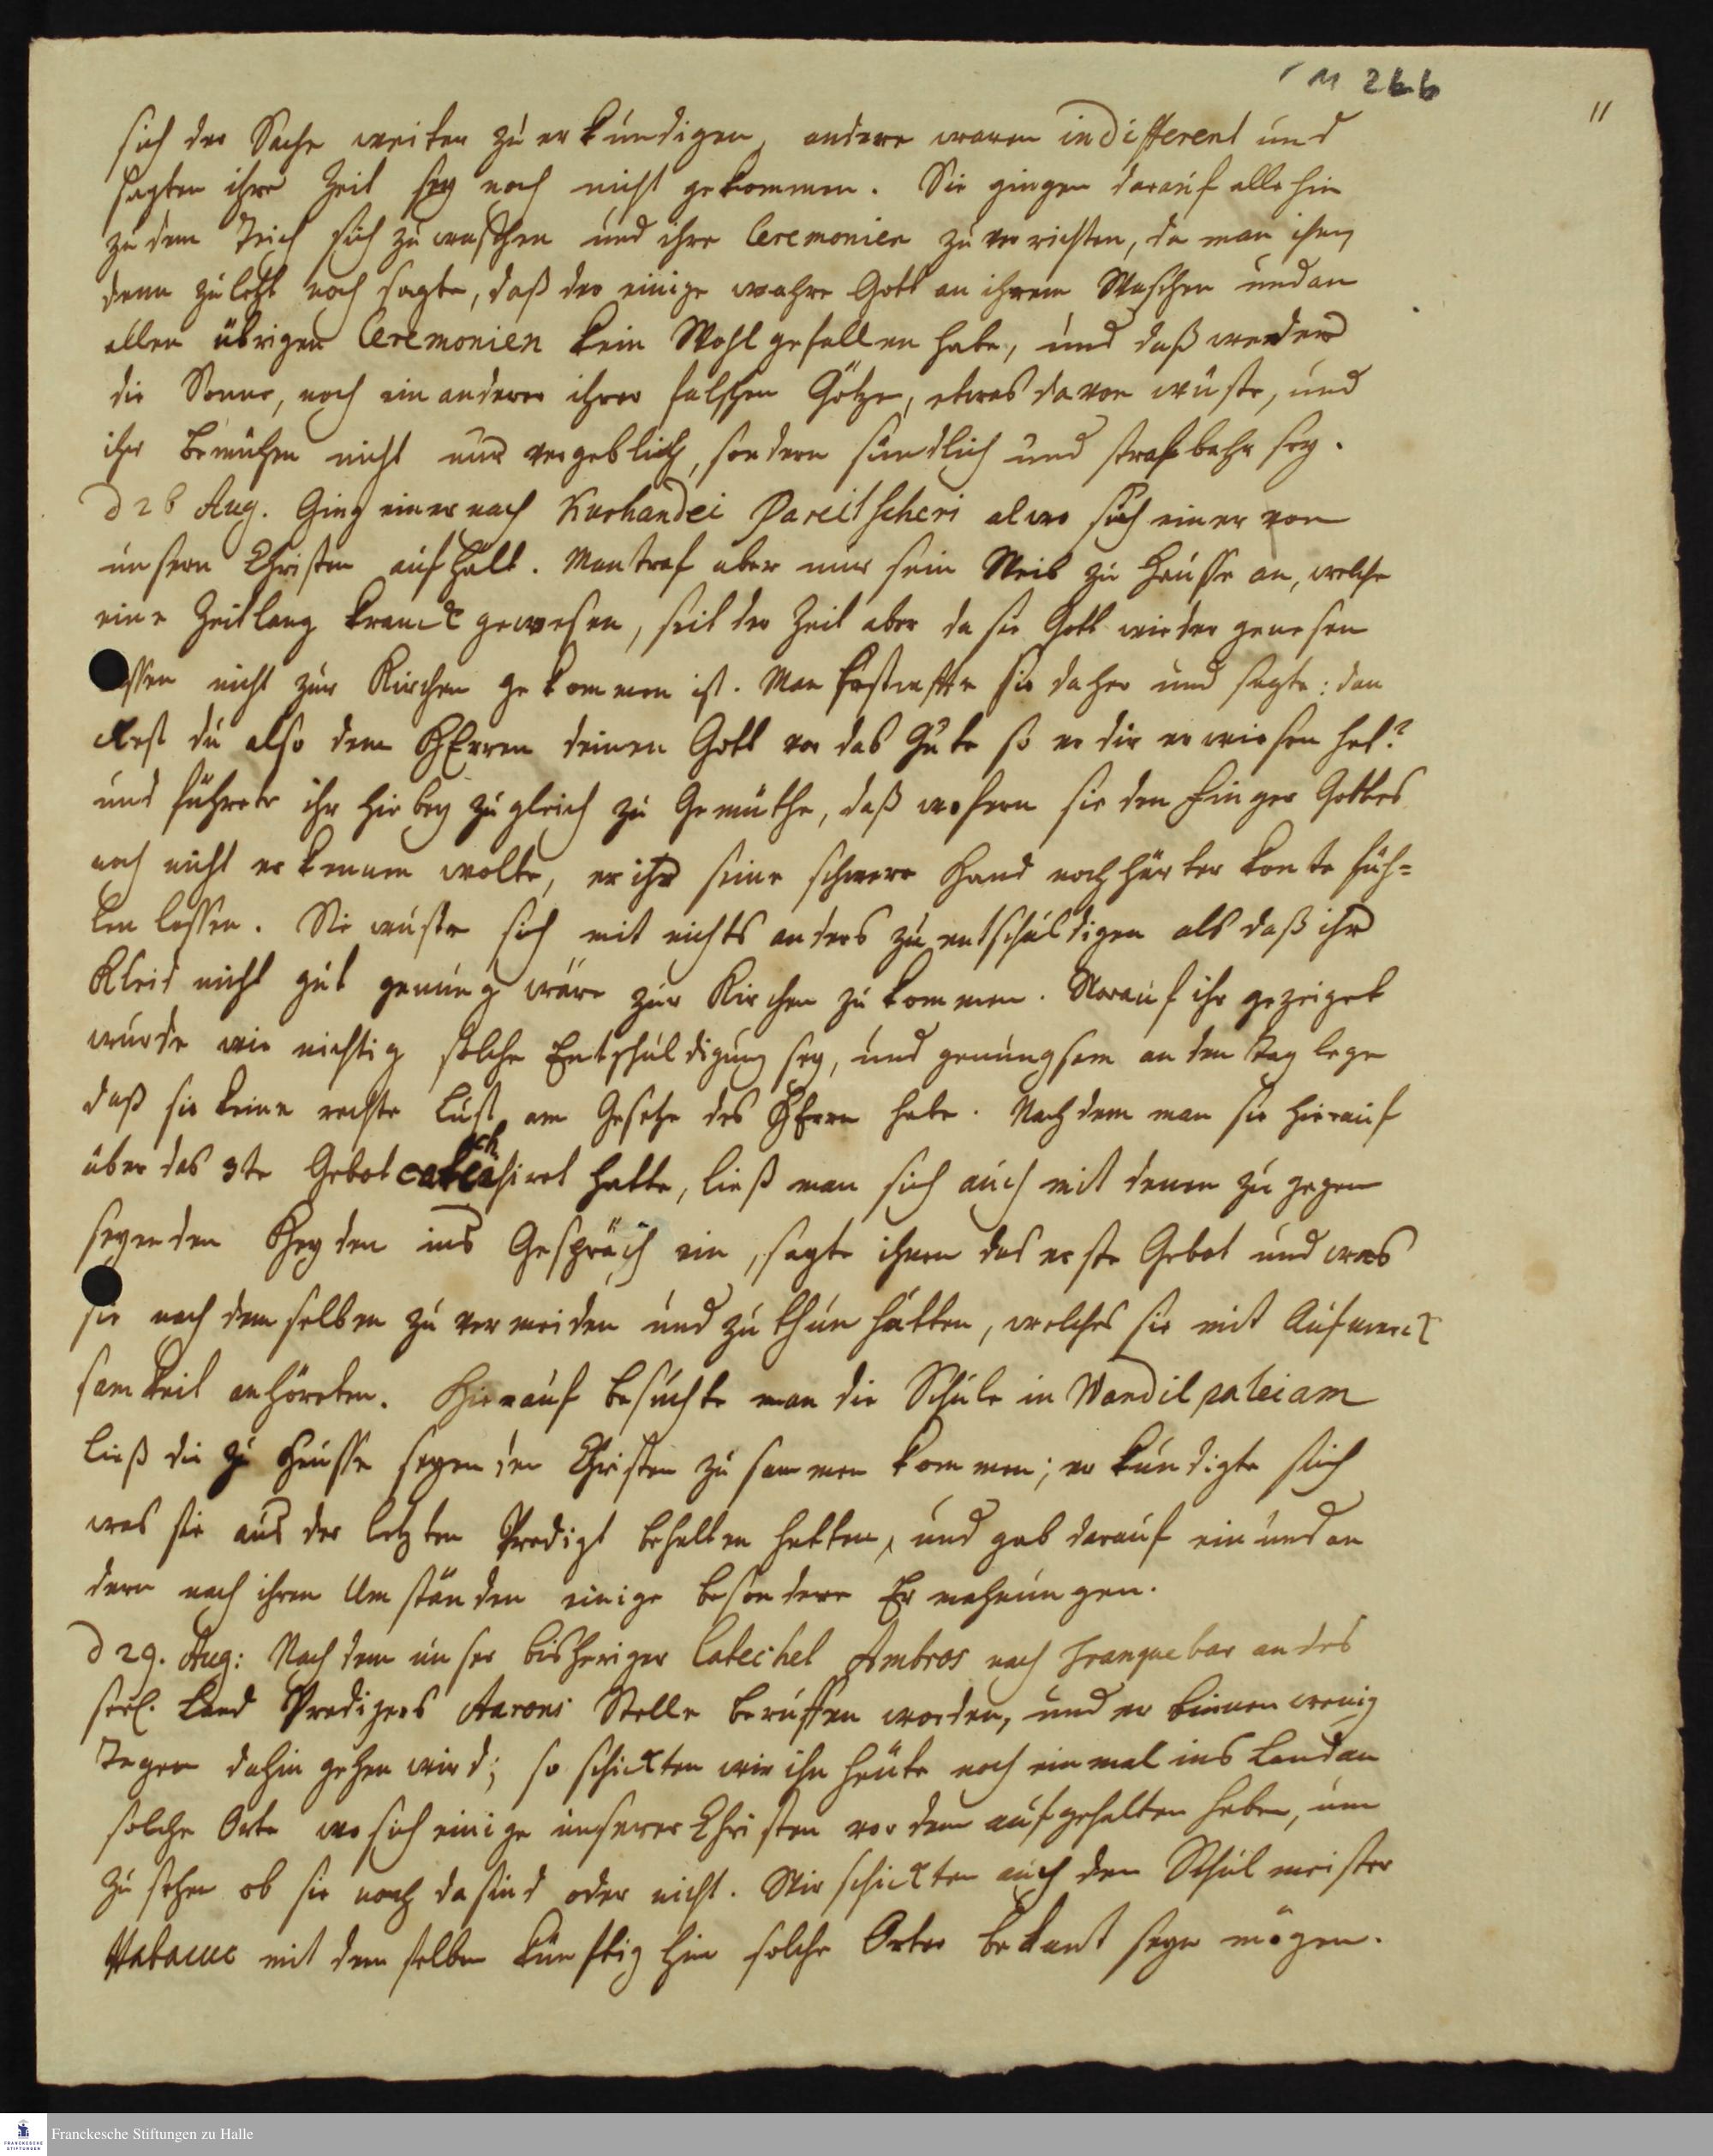 M 2 6 6
11
sich der Sache weiter zu erkundigen, andere waren indifferent und
sagten ihre Zeit sey noch nicht gekommen. Sie gingen darauf alle hin
zu dem Teich sich zu waschen und ihre Ceremonien zu verrichten, da man ihnen
denn zuletzt noch sagte, daß der einige wahre Gott an ihrem Waschen und an
allen übrigen Ceremonien kein Wohlgefallen habe, und daß weder
die Sonne, noch ein anderer ihrer falschen Götzen, etwas davon wüste, und
ihr Bemühen nicht nur vergeblich, sondern sündlich und strafbahr sey.
d 26 Aug. Ging einer nach Kurhandei Pareitscheri alwo sich einer von
unsern Christen aufhält. Man traf aber nur sein Weib zu Hausse an, welche
eine Zeitlang kranck gewesen, seit der Zeit aber da sie Gott wieder genesen
lassen nicht zur Kirchen gekommen ist. Man bestrafte sie daher und sagte: dan
ckest du also dem HErren deinen Gott vor das Gute so er dir erwiesen hat?
und führete ihr hiebey zugleich zu Gemüthe, daß wofern sie den Finger Gottes
noch nicht erkennen wolte, er ihr seine schwere Hand noch härter konte füh=
len lassen. Sie wuste sich mit nichts anders zu entschuldigen als daß ihr
Kleid nicht gut genung wäre zur Kirchen zu kommen. Worauf ihr gezeiget
wurde wie nichtig solche Entschuldigung sey, und genungsam an den Tag lege
daß sie keine rechte Lust am Gesetze des HErrn habe. Nachdem man sie hierauf
über das 3te Gebot catechisiret hatte, ließ man sich auch mit denen zu gegen
seyenden Heyden ins Gespräch ein, sagte ihnen das erste Gebot und was
sie nach demselben zu vermeiden und zu thun hätten, welches sie mit Aufmerck
samkeit anhöreten. Hierauf besuchte man die Schule in Wandilpaleiam
ließ die zu Hausse seyenden Christen zusammen kommen; erkundigte sich
was sie aus der letzten Predigt behalten hatten, und gab darauf ein und an
dern nach ihren Umständen einige besondere Ermahnungen.
d 29. Aug: Nachdem unser bisheriger Catechet Ambros nach Tranquebar an des
seel. Land Predigers Aarons Stelle beruffen worden, und er binnen wenig
Tagen dahin gehen wird; so schickten wir ihn heute noch einmal ins Land an
solche Orte wo sich einige unserer Christen vor dem aufgehalten haben, um
zu sehen ob sie noch da sind oder nicht. Wir schickten auch den Schulmeister
Habacuc mit demselben künftig hin solche Orter bekant seyn mögen.
Franckesche Stiftungen zu Halle